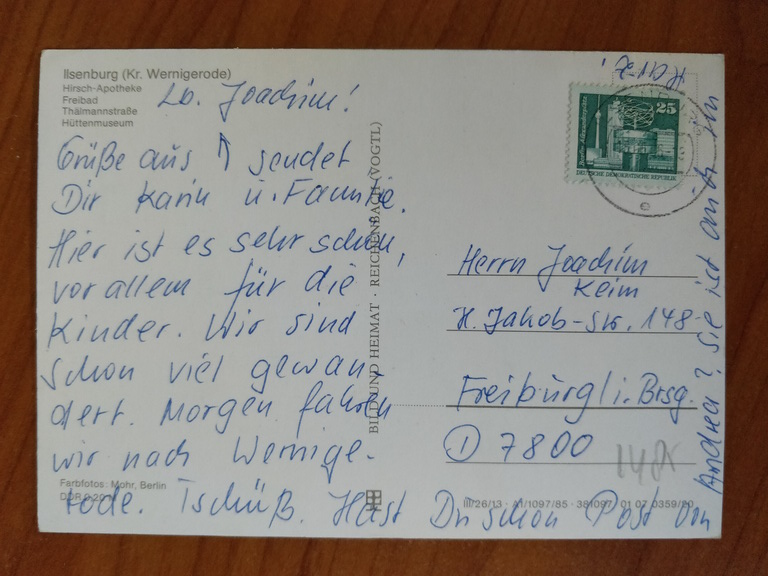 Ilsenburg (Kr. Wernigerode)
Hirsch-Apotheke
Freibad
Thälmannstraße
Hüttenmuseum
Lb. Joachim!
Grüße aus ↑ sendet
Dir Karin u. Familie.
Hier ist es sehr schön,
vor allem für die
Kinder. Wir sind
schon viel gewan-
dert. Morgen fahren
wir nach Wernige-
rode. Tschüß. Hast Du schon Post von
Andrea? Sie ist auch im
Harz!
Farbfotos: Mohr, Berlin
DDR 0,20 M
BILD UND HEIMAT · REICHENBACH (VOGTL)
25
DEUTSCHE DEMOKRATISCHE REPUBLIK
Herrn Joachim
Keim
H. Jakob-Str. 148
Freiburg i. Brsg.
D 7800
III/26/13 · A1/1097/85 · 381097 01 07 0359/20